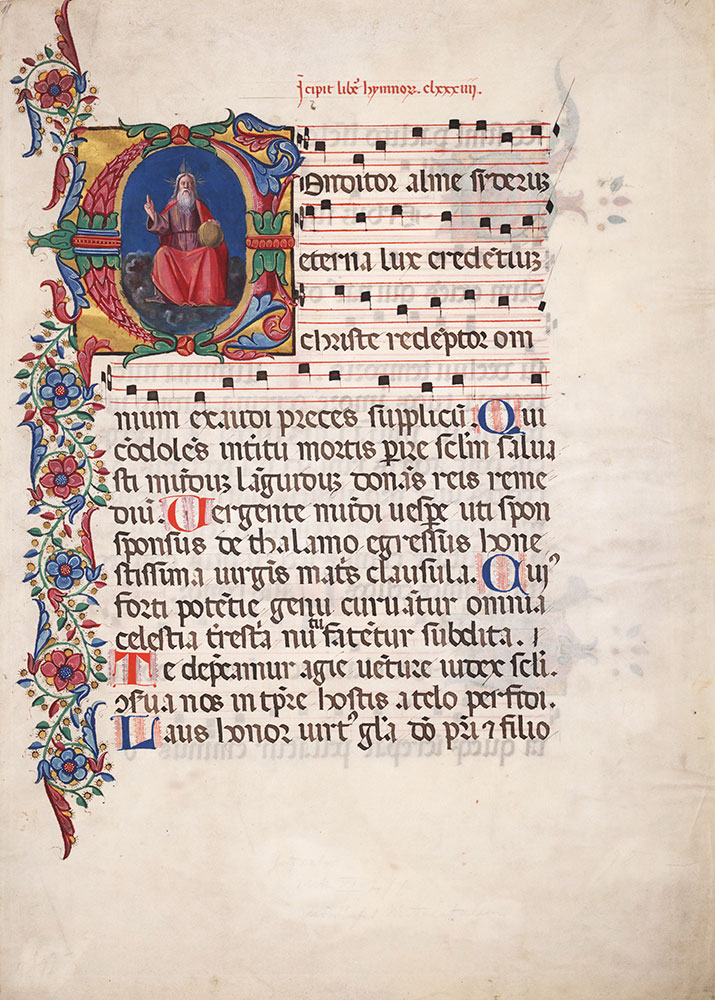 Īcipit libe᷎ hymnoꝝ. clxxxiiij.
Conditor alme sẏderuꝫ
eterna lux credētiuꝫ
christe redēptor om
nium exaudi preces supplicū. Qui
cōdolēs īnteritu mortis ꝑire seclm salua
sti mūduꝫ lāguiduꝫ donās reis reme
diū. Uergente mūdi uespe uti spon
sponsus de thalamo egressus hone
stissima uirgīs matͥs clausula. Cuiꝰ
forti potētie genu curuātur omnia
celestia tr̄estͣa nutu fatētur subdita.
Te dep̄camur agie uēture iudex secli.
ↄſua nos in tp̄re hostis a telo perfidi.
Laus honor uirtꝰ gl̄a dō pr̄i ⁊ filio